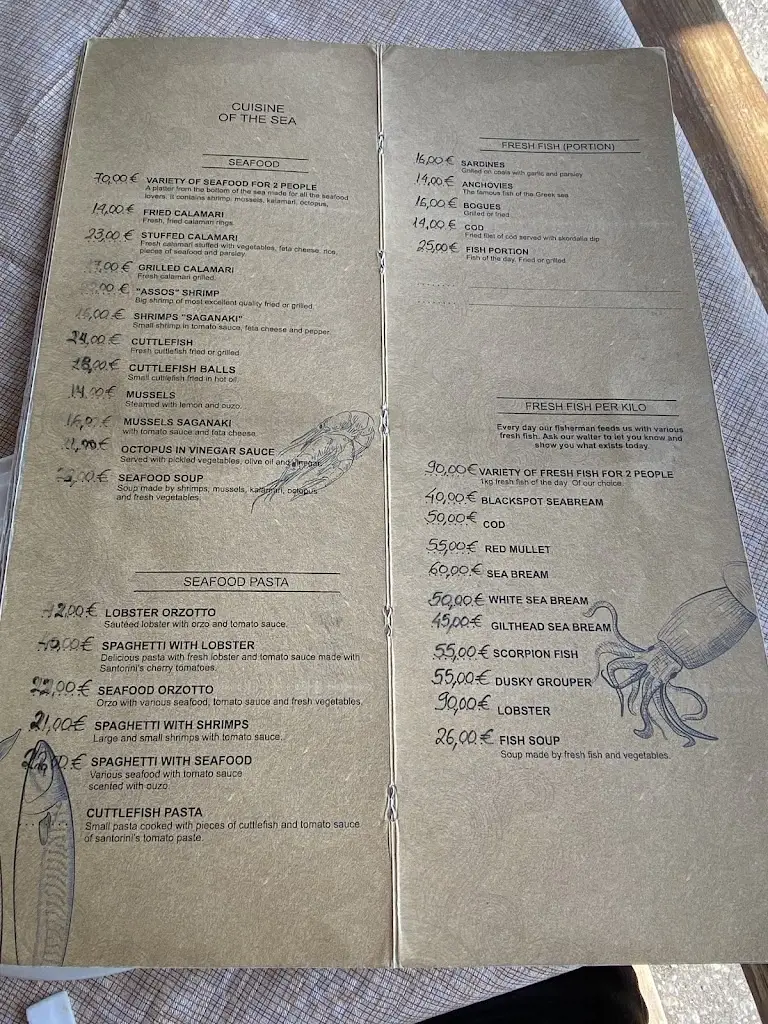 CUISINE
OF THE SEA
SEAFOOD
70,00€ VARIETY OF SEAFOOD FOR 2 PEOPLE
A platter from the bottom of the sea made for all the seafood
lovers. It contains shrimp, mussels, kalamari, octopus,
14,00€ FRIED CALAMARI
Fresh, fried calamari rings.
23,00€ STUFFED CALAMARI
Fresh calamari stuffed with vegetables, feta cheese, rice,
pieces of seafood and parsley.
€ GRILLED CALAMARI
Fresh calamari grilled.
€ "ASSOS" SHRIMP
Big shrimp of most excellent quality fried or grilled.
15,00€ SHRIMPS "SAGANAKI"
Small shrimp in tomato sauce, feta cheese and pepper.
24,00€ CUTTLEFISH
Fresh cuttlefish fried or grilled
18,00€ CUTTLEFISH BALLS
Small cuttlefish fried in hot oil.
14,00€ MUSSELS
Steamed with lemon and ouzo.
€ MUSSELS SAGANAKI
with tomato sauce and feta cheese.
€ OCTOPUS IN VINEGAR SAUCE
Served with pickled vegetables, olive oil and vinegar.
€ SEAFOOD SOUP
Soup made by shrimps, mussels, kalamari, octopus
and fresh vegetables.
SEAFOOD PASTA
€ LOBSTER ORZOTTO
Sautéed lobster with orzo and tomato sauce.
€ SPAGHETTI WITH LOBSTER
Delicious pasta with fresh lobster and tomato sauce made with
Santorini's cherry tomatoes.
22,00€ SEAFOOD ORZOTTO
Orzo with various seafood, tomato sauce and fresh vegetables.
21,00€ SPAGHETTI WITH SHRIMPS
Large and small shrimps with tomato sauce.
€ SPAGHETTI WITH SEAFOOD
Various seafood with tomato sauce
scented with ouzo
CUTTLEFISH PASTA
Small pasta cooked with pieces of cuttlefish and tomato sauce
of santorini's tomato paste.
FRESH FISH (PORTION)
16,00€ SARDINES
Grilled on coals with garlic and parsley
14,00€ ANCHOVIES
The famous fish of the Greek sea
16,00€ BOGUES
Grilled or fried
14,00€ COD
Fried filet of cod served with skordalia dip
25,00€ FISH PORTION
Fish of the day. Fried or grilled
FRESH FISH PER KILO
Every day our fisherman feeds us with various
fresh fish. Ask our waiter to let you know and
show you what exists today.
90,00€ VARIETY OF FRESH FISH FOR 2 PEOPLE
1kg fresh fish of the day. Of our choice.
40,00€ BLACKSPOT SEABREAM
50,00€ COD
55,00€ RED MULLET
60,00€ SEA BREAM
50,00€ WHITE SEA BREAM
45,00€ GILTHEAD SEA BREAM
55,00€ SCORPION FISH
55,00€ DUSKY GROUPER
90,00€ LOBSTER
26,00€ FISH SOUP
Soup made by fresh fish and vegetables.